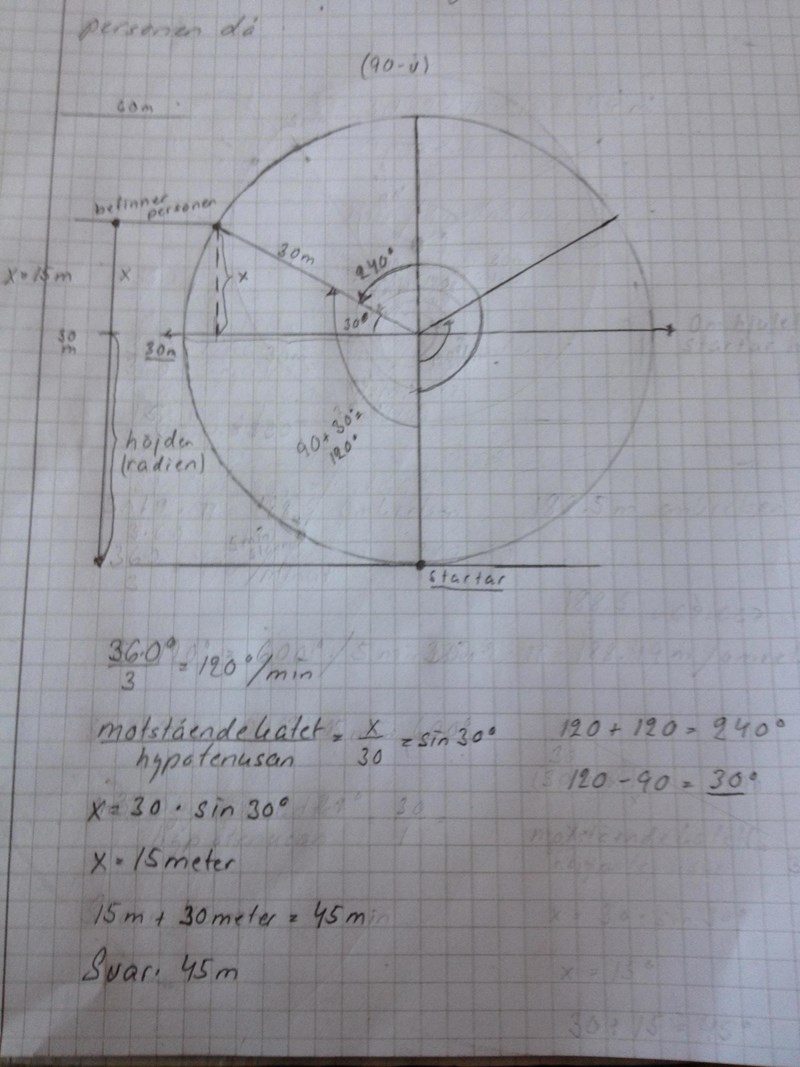 personen då
(90-v)
60m
befinner
personen
30m
240°
x = 15m
x
x
30°
30
m
30m
höjden
(radien)
90+30°=
120°
startar
360°/3 = 120°/min
motståendekatet/hypotenusan = x/30 = sin 30°
120 + 120 = 240°
120 - 90 = 30°
x = 30 · sin 30°
x = 15 meter
15m + 30 meter = 45m
Svar: 45m